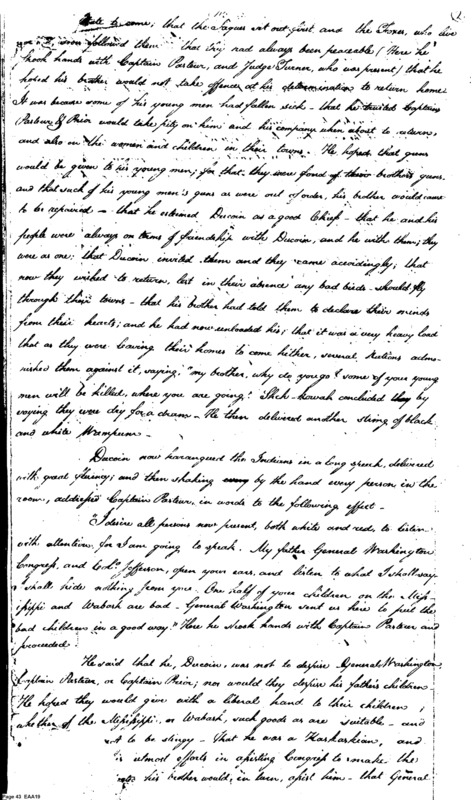 to come, that the Sagues set out first, and the Foxes, who live
soon followed them - that they had always been peaceable (Here he
shook hands with Captain Pasteur, and Judge Turner, who was present) that he
hoped his brother would not take offence at his determination to return home
It was because some of his young men had fallen sick - that he trusted Captains
Pasteur & Prior would take pity on him and his company when about to return,
and also on the women and children in their towns. He hoped that guns
would be given to his young men; for that they were fond of their brothers guns.
and that such of his young men's guns as were out of order, his brother would cause
to be repaired - that he esteemed Ducoin as a good Chief - that he and his
people were always on terms of friendship with Ducoin, and he with them; they
were as one: that Ducoin invited them and they came accordingly; that
now they wished to return, lest in their absence any bad birds should fly
through their towns - that his brother had told them to declare their minds
from their hearts; and he had now unloaded his; that it was a very heavy load
that as they were leaving their homes to come hither, several Nations admo-
nished them against it, saying. "my brother, why do you go? some of your young
men will be killed, where you are going! concluded by
saying they were dry for a dram - He then delivered another string of black
and white Wampum -
Ducoin now harangued the Indians in a long speech, delivered
with great fluency; and then shaking by the hand every person in the
room, addressed Captain Pasteur, in words to the following effect -
"I desire all persons now present, both white and red, to listen
with attention, for I am going to speak. My father General Washington
Congress, and Jefferson, open your ears, and listen to what I shall say.
I shall hide nothing from you. One half of your children on the Mis-
sippi and Wabash are bad - General Washington sent us here to put the
bad children in a good way." Here he shook hands with Captain Pasteur and
proceeded.
He said that he, Ducoin, was not to despise General Washington
Captain Pasteur, or Captain Prior; nor would they despise his father's children.
He hoped they would give with a liberal hand to their children,
whether of the Missisippi, or Wabash, such goods as are suitable - and
not to be stingy - that he was a Kaskaskian, and
utmost efforts in assisting Congress to make the
his brother would, in turn, assist him - that General
Page 43 EAA19